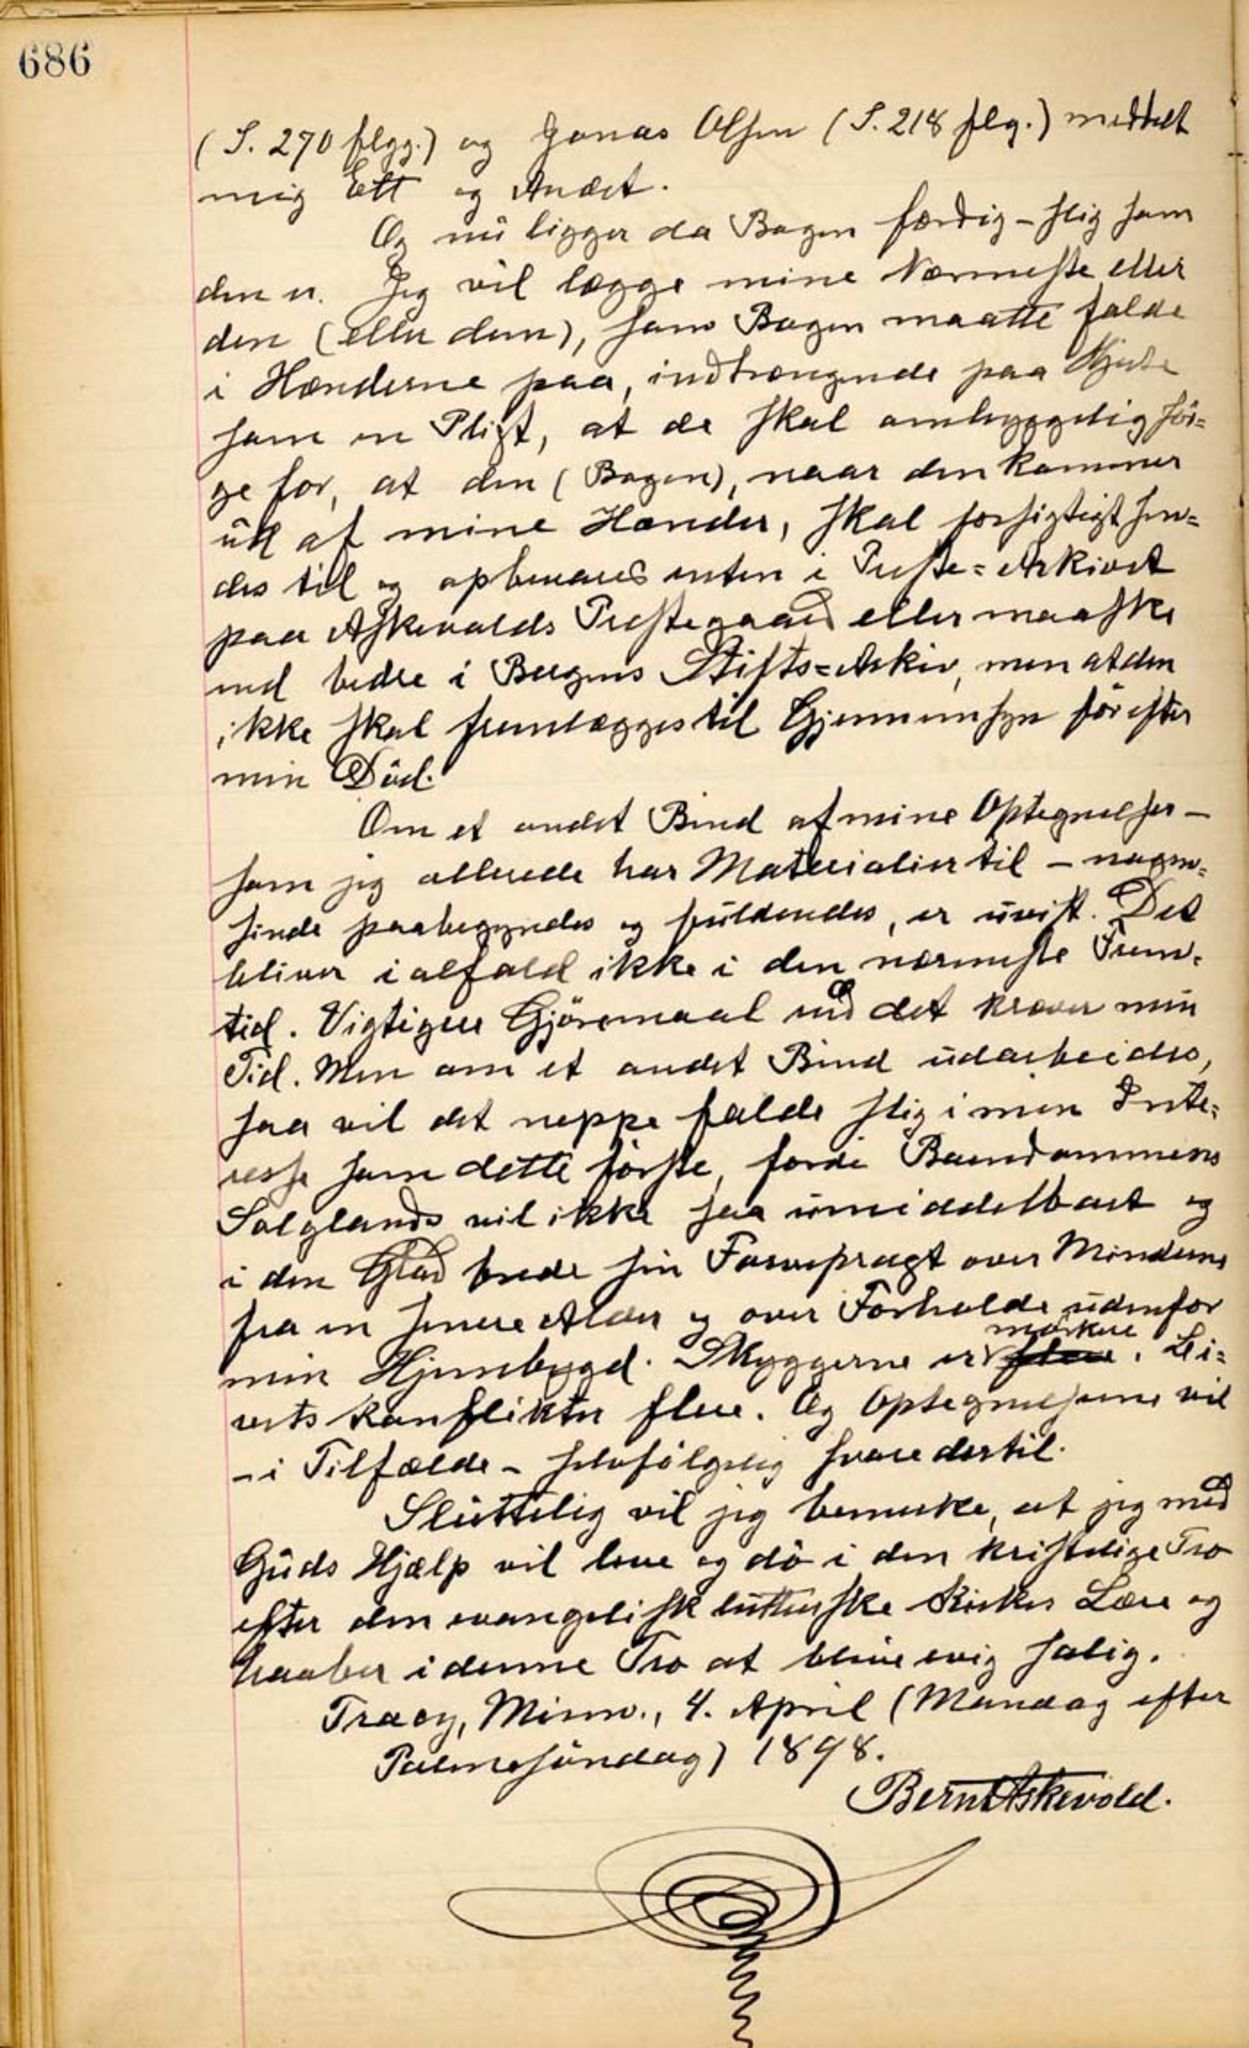 686
(S. 270 flgg.) og Jonas Olsen (S. 218 flg.) meddelt
mig Ett og Andet.
Og nu ligger da Bogen færdig – slig som
den er. Jeg vil lægge mine Nærmeste eller
den (eller dem), som Bogen maatte falde
i Hænderne paa, indtrængende paa Hjerte
som en Pligt, at de skal omhyggelig sør=
ge for, at den (Bogen), naar den kommer
ut af mine Hænder, skal forsigtigt sen=
des til og opbevares enten i Preste=Arkivet
paa Askevolds Prestegaard eller maaske
end bedre i Bergens Stifts=Arkiv, men at den
ikke skal fremlægges til Gjennemsyn før efter
min Död.
Om et andet Bind af mine Optegnelser –
som jeg allerede har Materialier til – nogen=
sinde paabegyndes og fuldendes, er uvist. Det
bliver ialfald ikke i den nærmeste Frem=
tid. Vigtigere Gjöremaal end det kræver min
Tid. Men om et andet Bind udarbeides,
saa vil det neppe falde slig i min Inte=
resse som dette förste, fordi Barndommens
Solglands vil ikke saa umiddelbart og
i den Grad brede sin Farvepragt over Minderne
fra en senere Alder og over Forholde udenfor
min Hjembygd. Skyggerne er mörkere flere. Li=
vets Konflikter flere. Og Optegnelserne vil
– i Tilfælde – selvfölgelig svare dertil.
Sluttelig vil jeg bemerke, at jeg med
Guds Hjælp vil leve og dö i den kristelige Tro
efter den evangelisk lutherske Kirkes Lære og
haaber i denne Tro at blive evig salig.
Tracy, Minn., 4. April (Mandag efter
Palmesöndag) 1898.
Bernt Askevold.